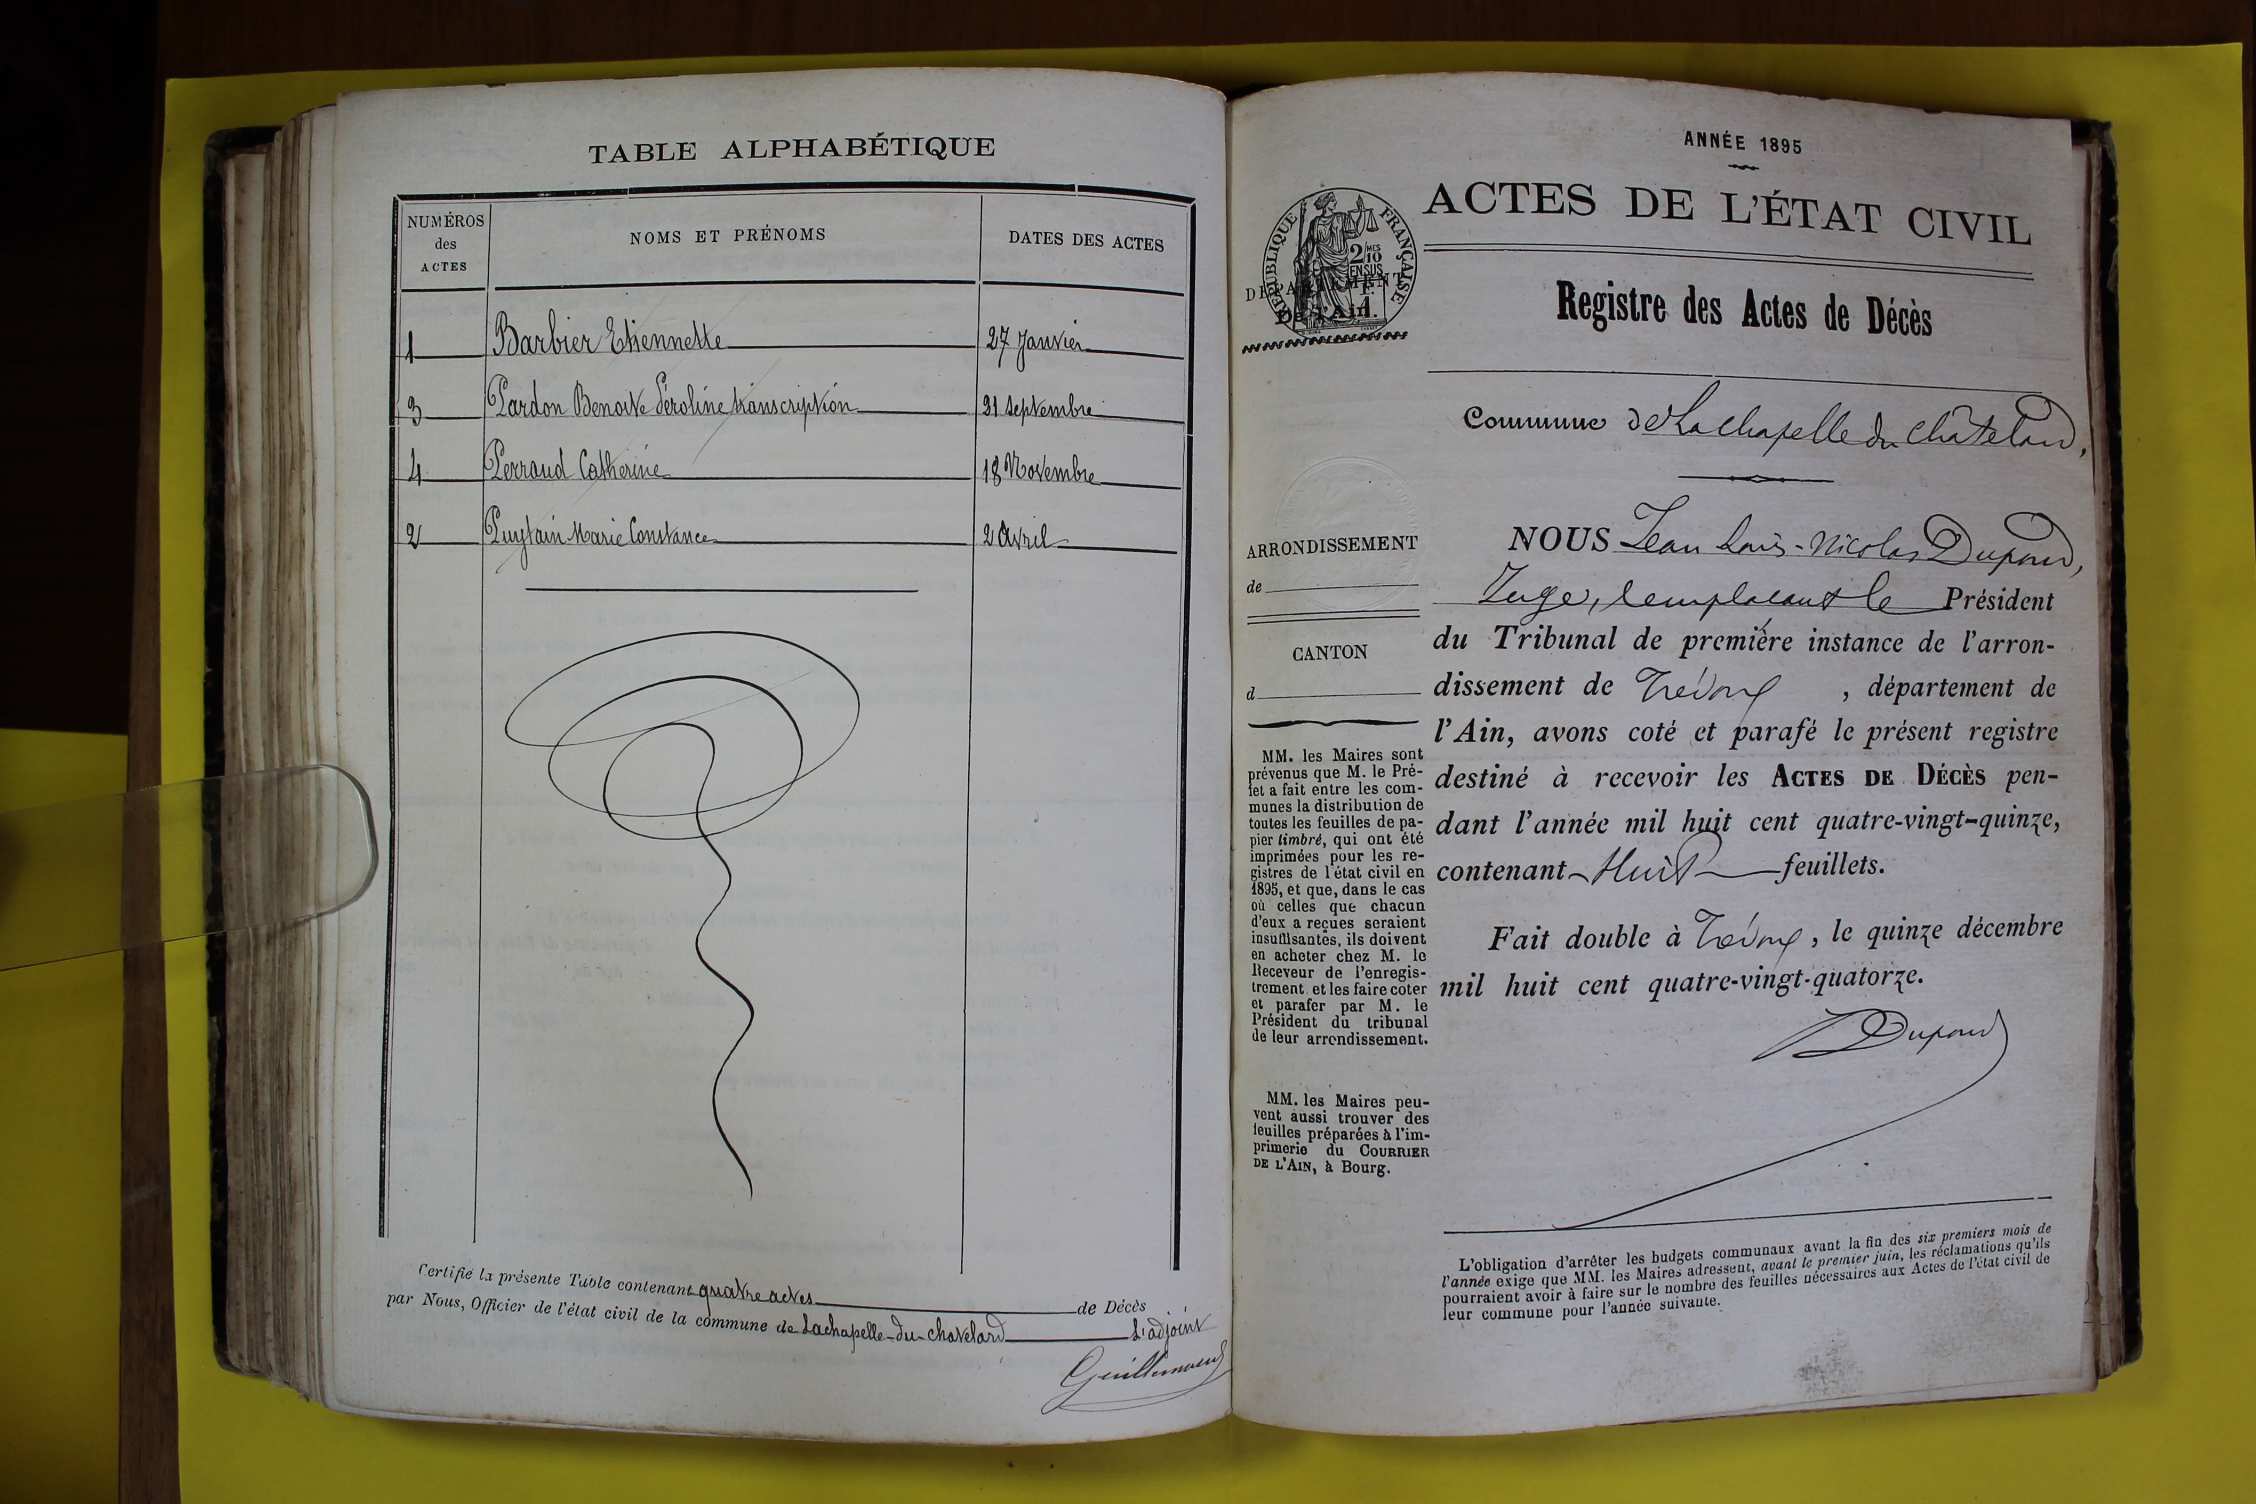 TABLE ALPHABÉTIQUE
NUMÉROS
des
ACTES
NOMS ET PRÉNOMS
DATES DES ACTES
1 Barbier Etiennette 27 Janvier
3 Pardon Benoite Péroline transcription 21 septembre
4 Perraud Catherine 18 Novembre
2 Marie Constance 2 Avril
Certifié la présente Table contenant quatre actes de Décès
par Nous, Officier de l'état civil de la commune de Lachapelle-du-chatelard L'adjoint
ANNÉE 1895
ACTES DE L'ÉTAT CIVIL
RÉPUBLIQUE FRANÇAISE
2 MES
10
EN SUS
DÉPARTEMENT
De l'Ain.
Registre des Actes de Décès
Commune de La chapelle du Châtelard,
ARRONDISSEMENT
de
CANTON
d
MM. les Maires sont
prévenus que M. le Pré-
fet a fait entre les com-
munes la distribution de
toutes les feuilles de pa-
pier timbré, qui ont été
imprimées pour les re-
gistres de l'état civil en
1895, et que, dans le cas
où celles que chacun
d'eux a reçues seraient
insuffisantes, ils doivent
en acheter chez M. le
Receveur de l'enregis-
trement et les faire coter
et parafer par M. le
Président du tribunal
de leur arrondissement.
MM. les Maires peu-
vent aussi trouver des
feuilles préparées à l'im-
primerie du COURRIER
DE L'AIN, à Bourg.
NOUS Jean Louis-Nicolas Dupond,
Juge, remplacant le Président
du Tribunal de première instance de l'arron-
dissement de Trévoux, département de
l'Ain, avons coté et parafé le présent registre
destiné à recevoir les ACTES DE DÉCÈS pen-
dant l'année mil huit cent quatre-vingt-quinze,
contenant Huit feuillets.
Fait double à Trévoux, le quinze décembre
mil huit cent quatre-vingt-quatorze.
Dupond
L'obligation d'arrêter les budgets communaux avant la fin des six premiers mois de
l'année exige que MM. les Maires adressent, avant le premier juin, les réclamations qu'ils
pourraient avoir à faire sur le nombre des feuilles nécessaires aux Actes de l'état civil de
leur commune pour l'année suivante.